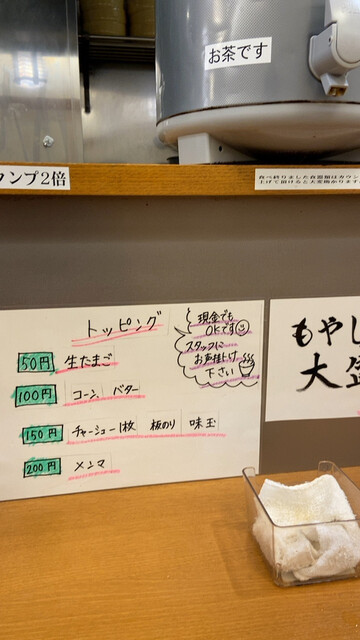 お茶です
ンプ2倍
食べ終りました食器類はカウン
上げて頂けると大変助かります
トッピング
50円 生たまご
100円 コーン バター
150円 チャーシュー1枚 板のり 味玉
200円 メンマ
現金でも
OKです
スタッフに
お声掛け
下さい
もやし
大